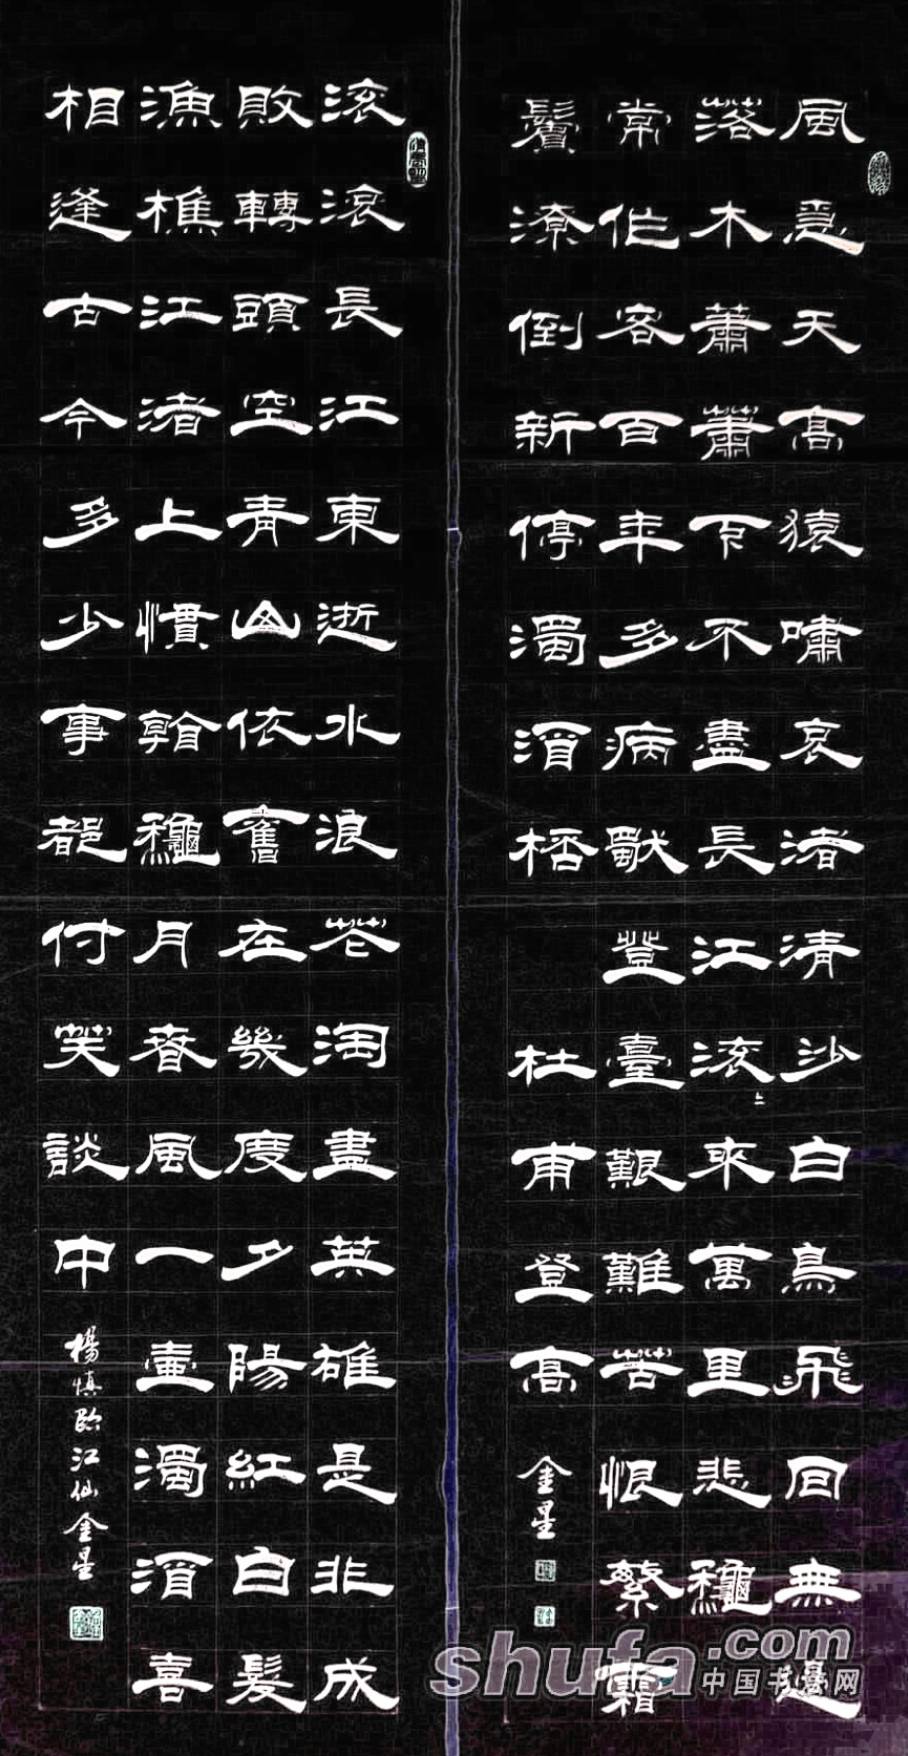 風急天高猿嘯哀渚清沙白鳥飛回無邊
落木蕭蕭下不盡長江滚〻來萬里悲龝
常作客百年多病獨登臺艱難苦恨繁霜
鬢潦倒新停濁酒桮
杜甫登高
金星
滚滚長江東逝水浪花淘盡英雄是非成
敗轉頭空青山依舊在幾度夕陽紅白髮
漁樵江渚上慣看龝月春風一壺濁酒喜
相逢古今多少事都付笑談中
楊慎臨江仙金星
shufa.com
中国书法网